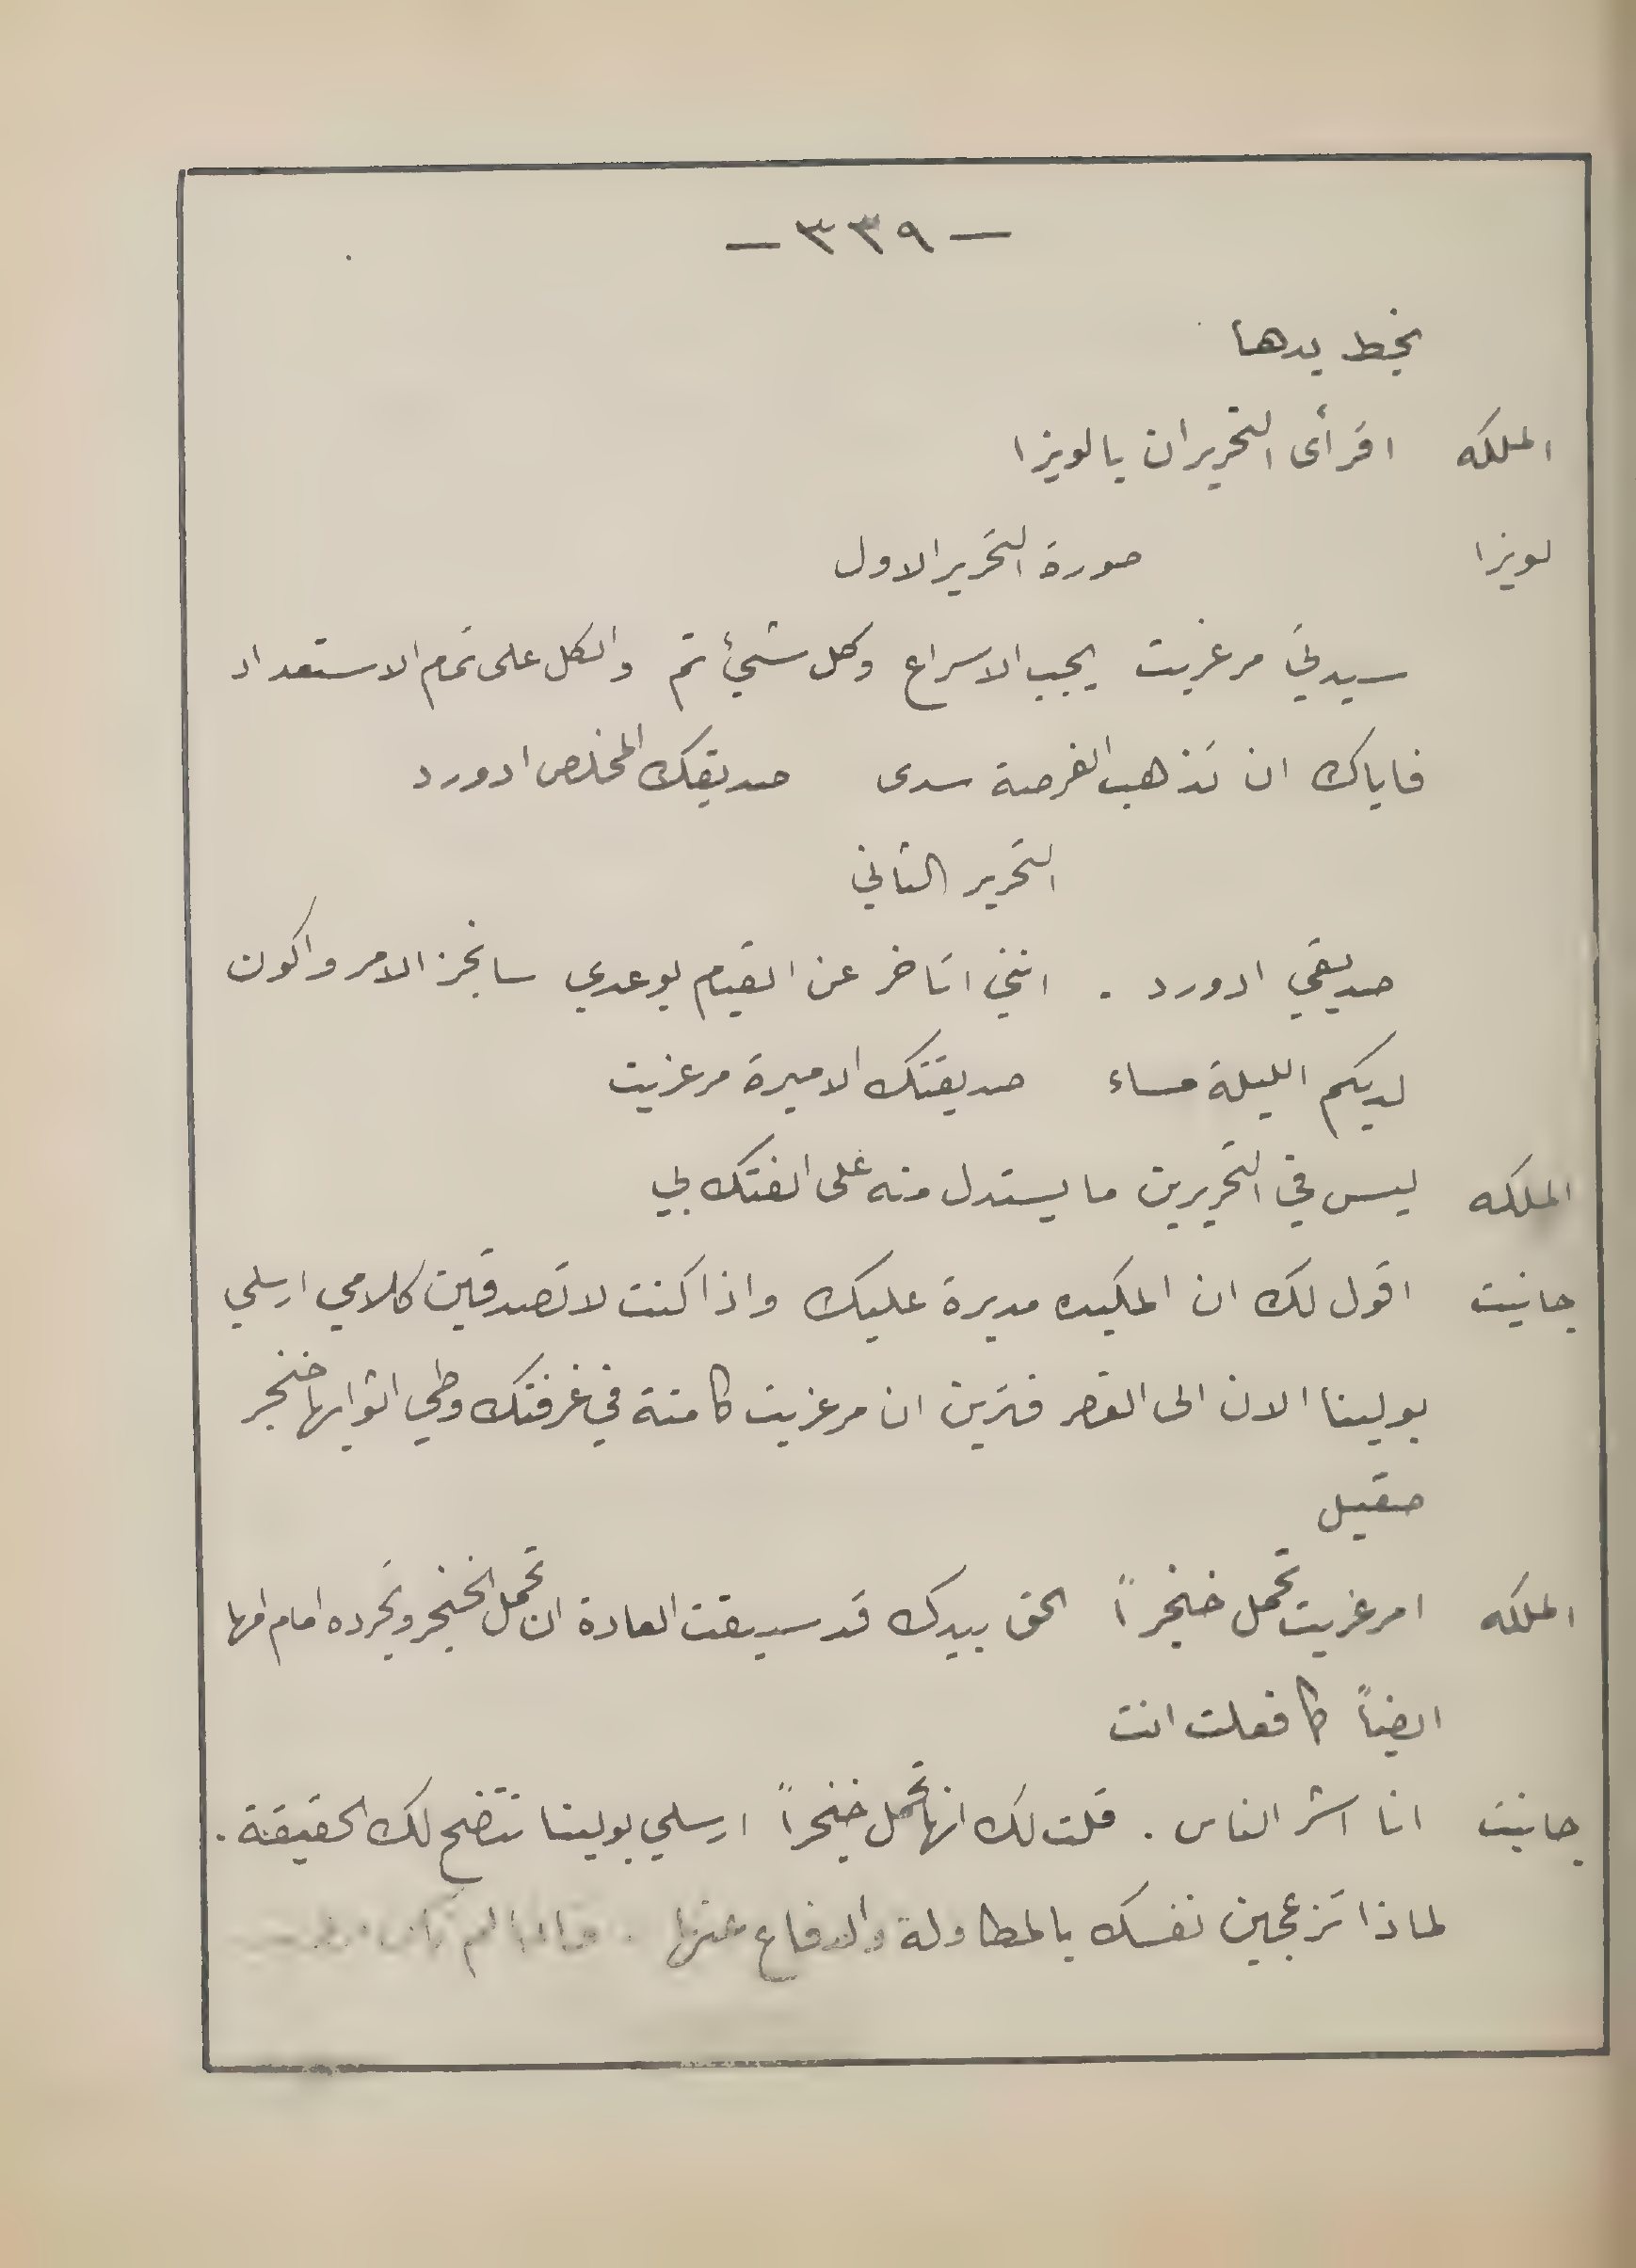 — ٣٣٩ —
بخط يدها
الملكه اقرأى التحريران يا لويزا
لويزا صورة التحرير الاول
سيدتي مرغريت يجب الاسراع وكل شيئ تم والكل على تمام الاستعداد
فاياك ان تذهب الفرصة سدى صديقك المخلص ادورد
التحرير الثاني
صديقي ادورد . انني اتاخر عن القيام بوعدي سانجز الامر واكون
لديكم الليلة مساء صديقتك الاميرة مرغريت
الملكه ليس في التحريرين ما يستدل منه على الفتك بي
جانيت اقول لك ان المكيده مديرة عليك واذا كنت لا تصدقين كلامي ارسلي
بولينا الان الى القصر فترين ان مرغريت كامنة في غرفتك وطي اثوابها خنجر
صقيل
الملكه امرغريت تحمل خنجراً الحق بيدك قد سبقت العادة ان تحمل الخنجر وتجرده امام امها
ايضاً كما فعلت انت
جانيت انا اشر الناس . قلت لك انها تحمل خنجراً ارسلي بولينا تتضح لك الحقيقة .
لماذا تزعجين نفسك بالمطاولة والدفاع عنها . واذا لم